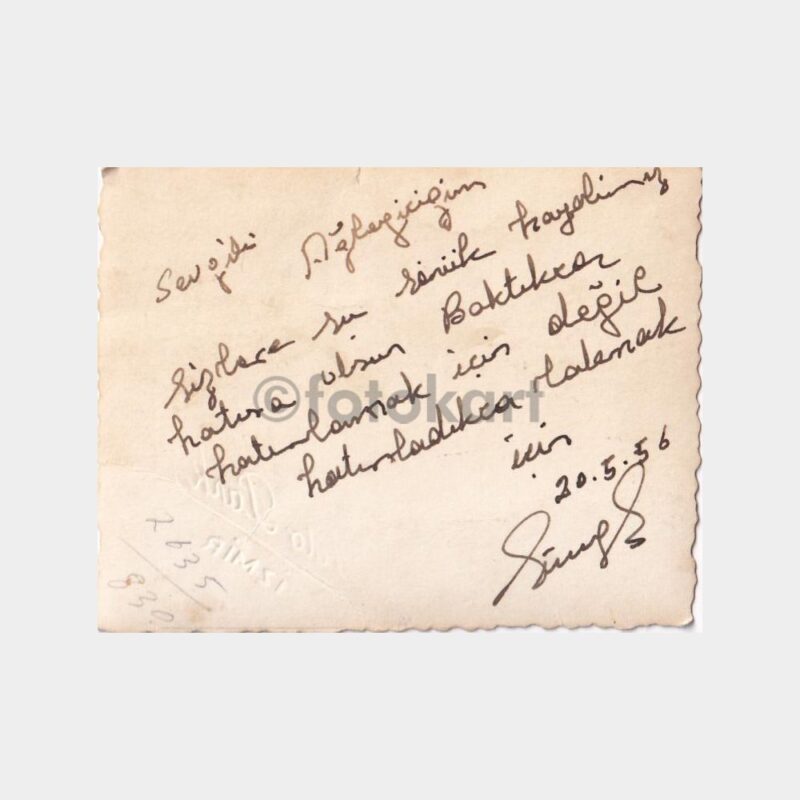 Sevgili
Sizlere şu sönük hayalimiz
hatıra olsun Baktıkça
hatırlamak için değil
hatırladıkça
için
20.5.56
©fotokart
İZMİR
2635
830